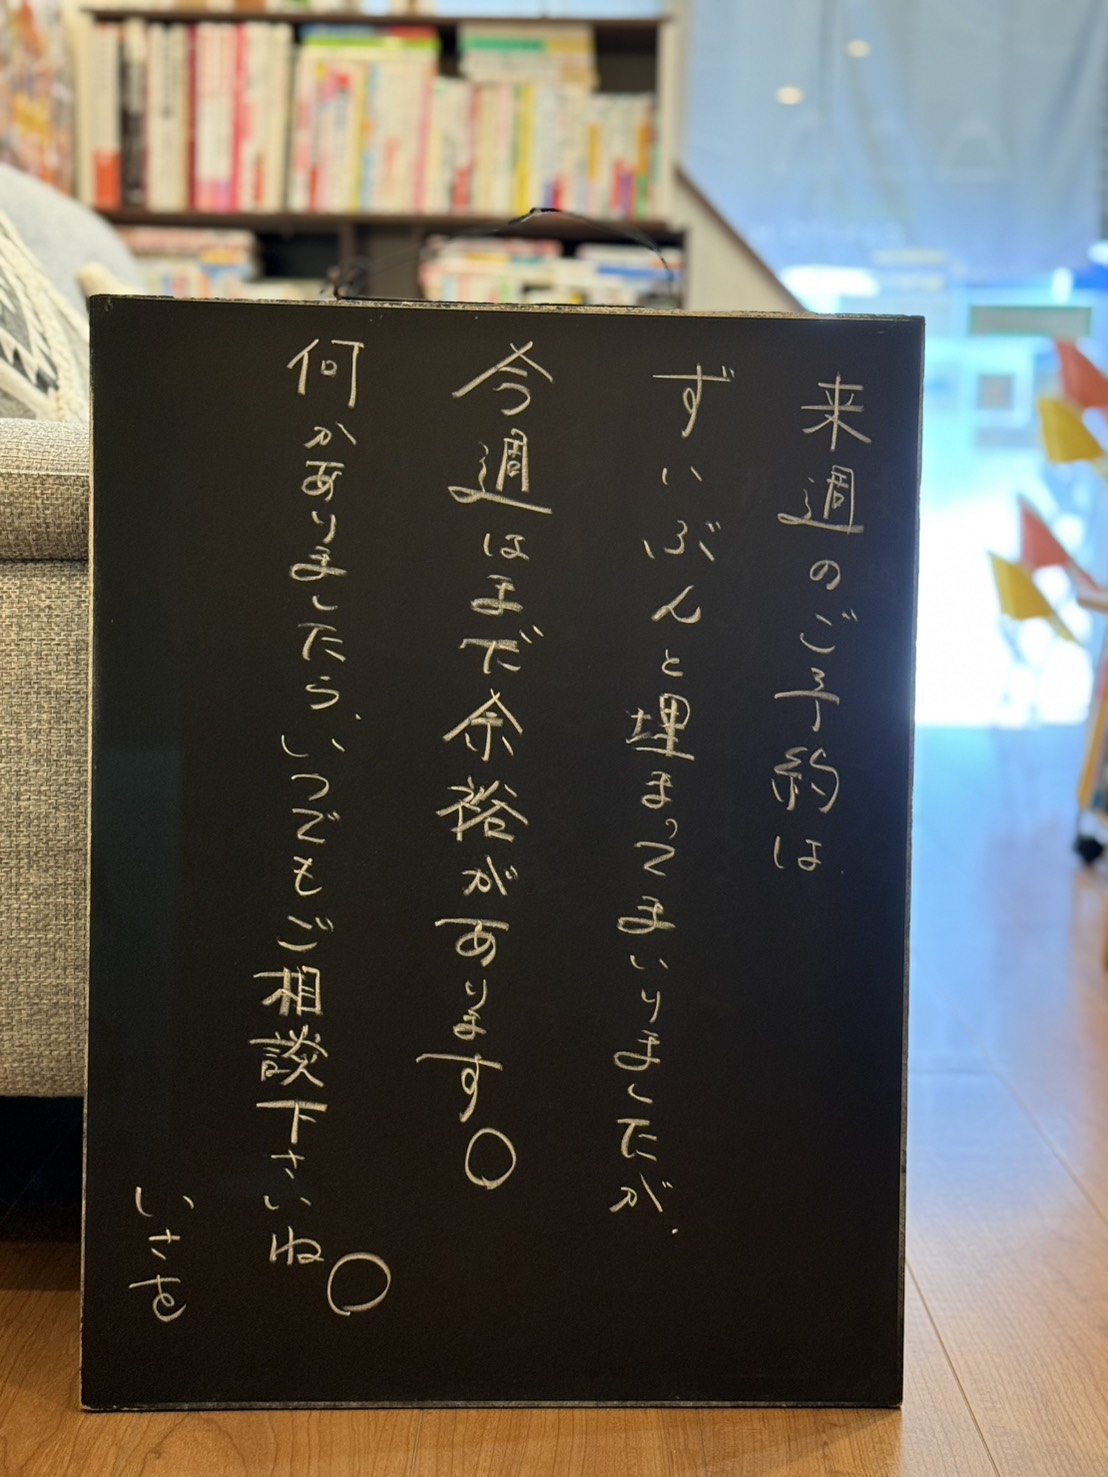 来週のご予約は
ずいぶんと埋まってまいりましたが、
今週はまだ余裕があります。
何かありましたら、いつでもご相談下さいね。
いさを